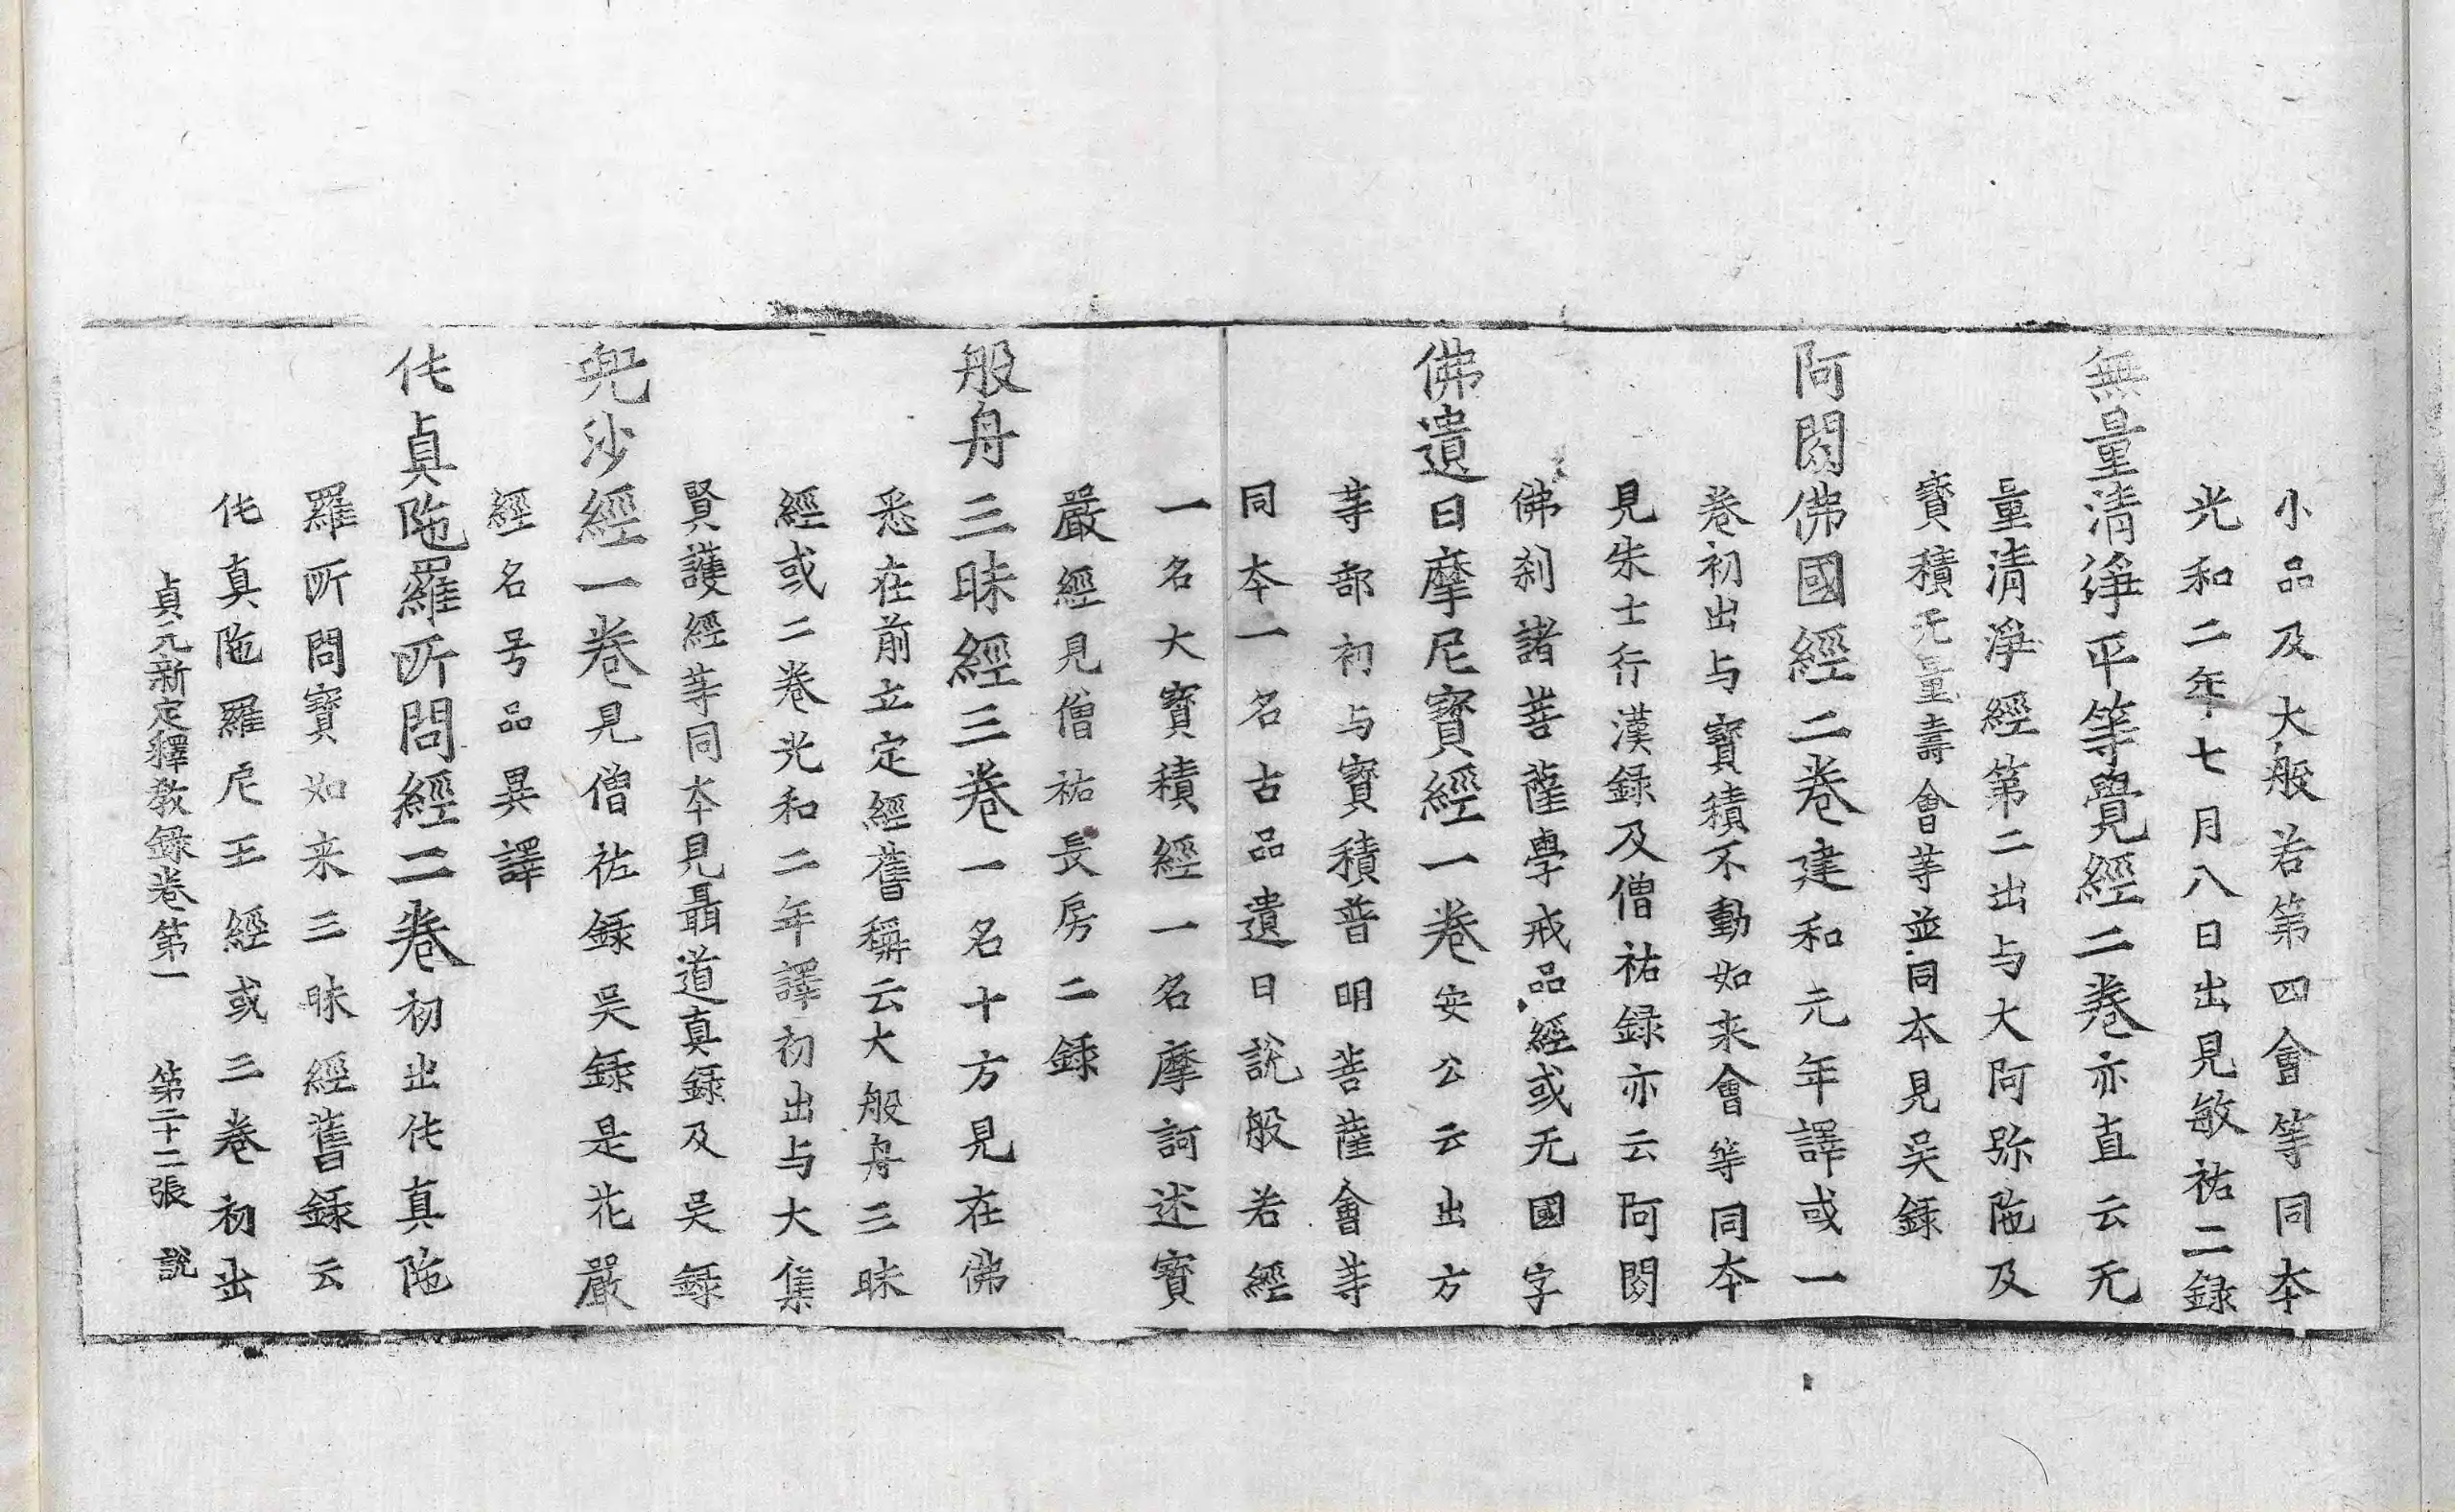 小品及大般若第四會等同本
光和二年七月八日出見敏祐二録
無量清淨平等覺經二卷亦直云无
量清淨經第二出与大阿弥陁及
寶積无量壽會䓁並同本見吴錄
阿閦佛國經二卷建和元年譯或一
卷初出与寶積不動如来會等同本
見朱士行漢録及僧祐録亦云阿閦
佛刹諸菩薩學戒品經或无國字
佛遺日摩尼寶經一卷安公云出方
䓁部初与寶積普明菩薩會䓁
同本一名古品遺日說般若經
一名大寶積經一名摩訶述寶
嚴經見僧祐長房二錄
般舟三昧經三卷一名十方見在佛
悉在前立定經舊稱云大般舟三昧
經或二卷光和二年譯初出与大集
賢護經䓁同本見聶道真録及吴錄
兜沙經一卷見僧祐錄吴錄是花嚴
經名号品異譯
伅貞陁羅所問經二卷初出伅真陁
羅所問寶如来三昧經舊錄云
伅真陁羅尼王經或三卷初出
貞元新定釋教錄卷第一 第二十二張 說